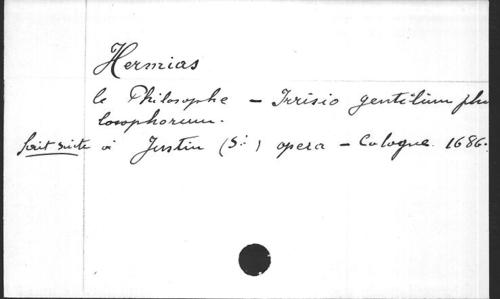 Hermias
le Philosophe - Irrisio gentilium phi
losophorum.
fait suite à Justin (St) opera - Cologne. 1686.